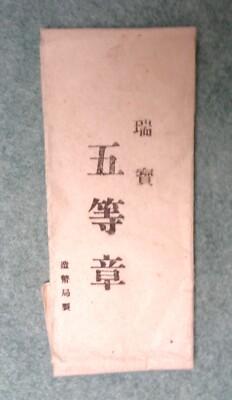 瑞寳
五等章
造幣局製